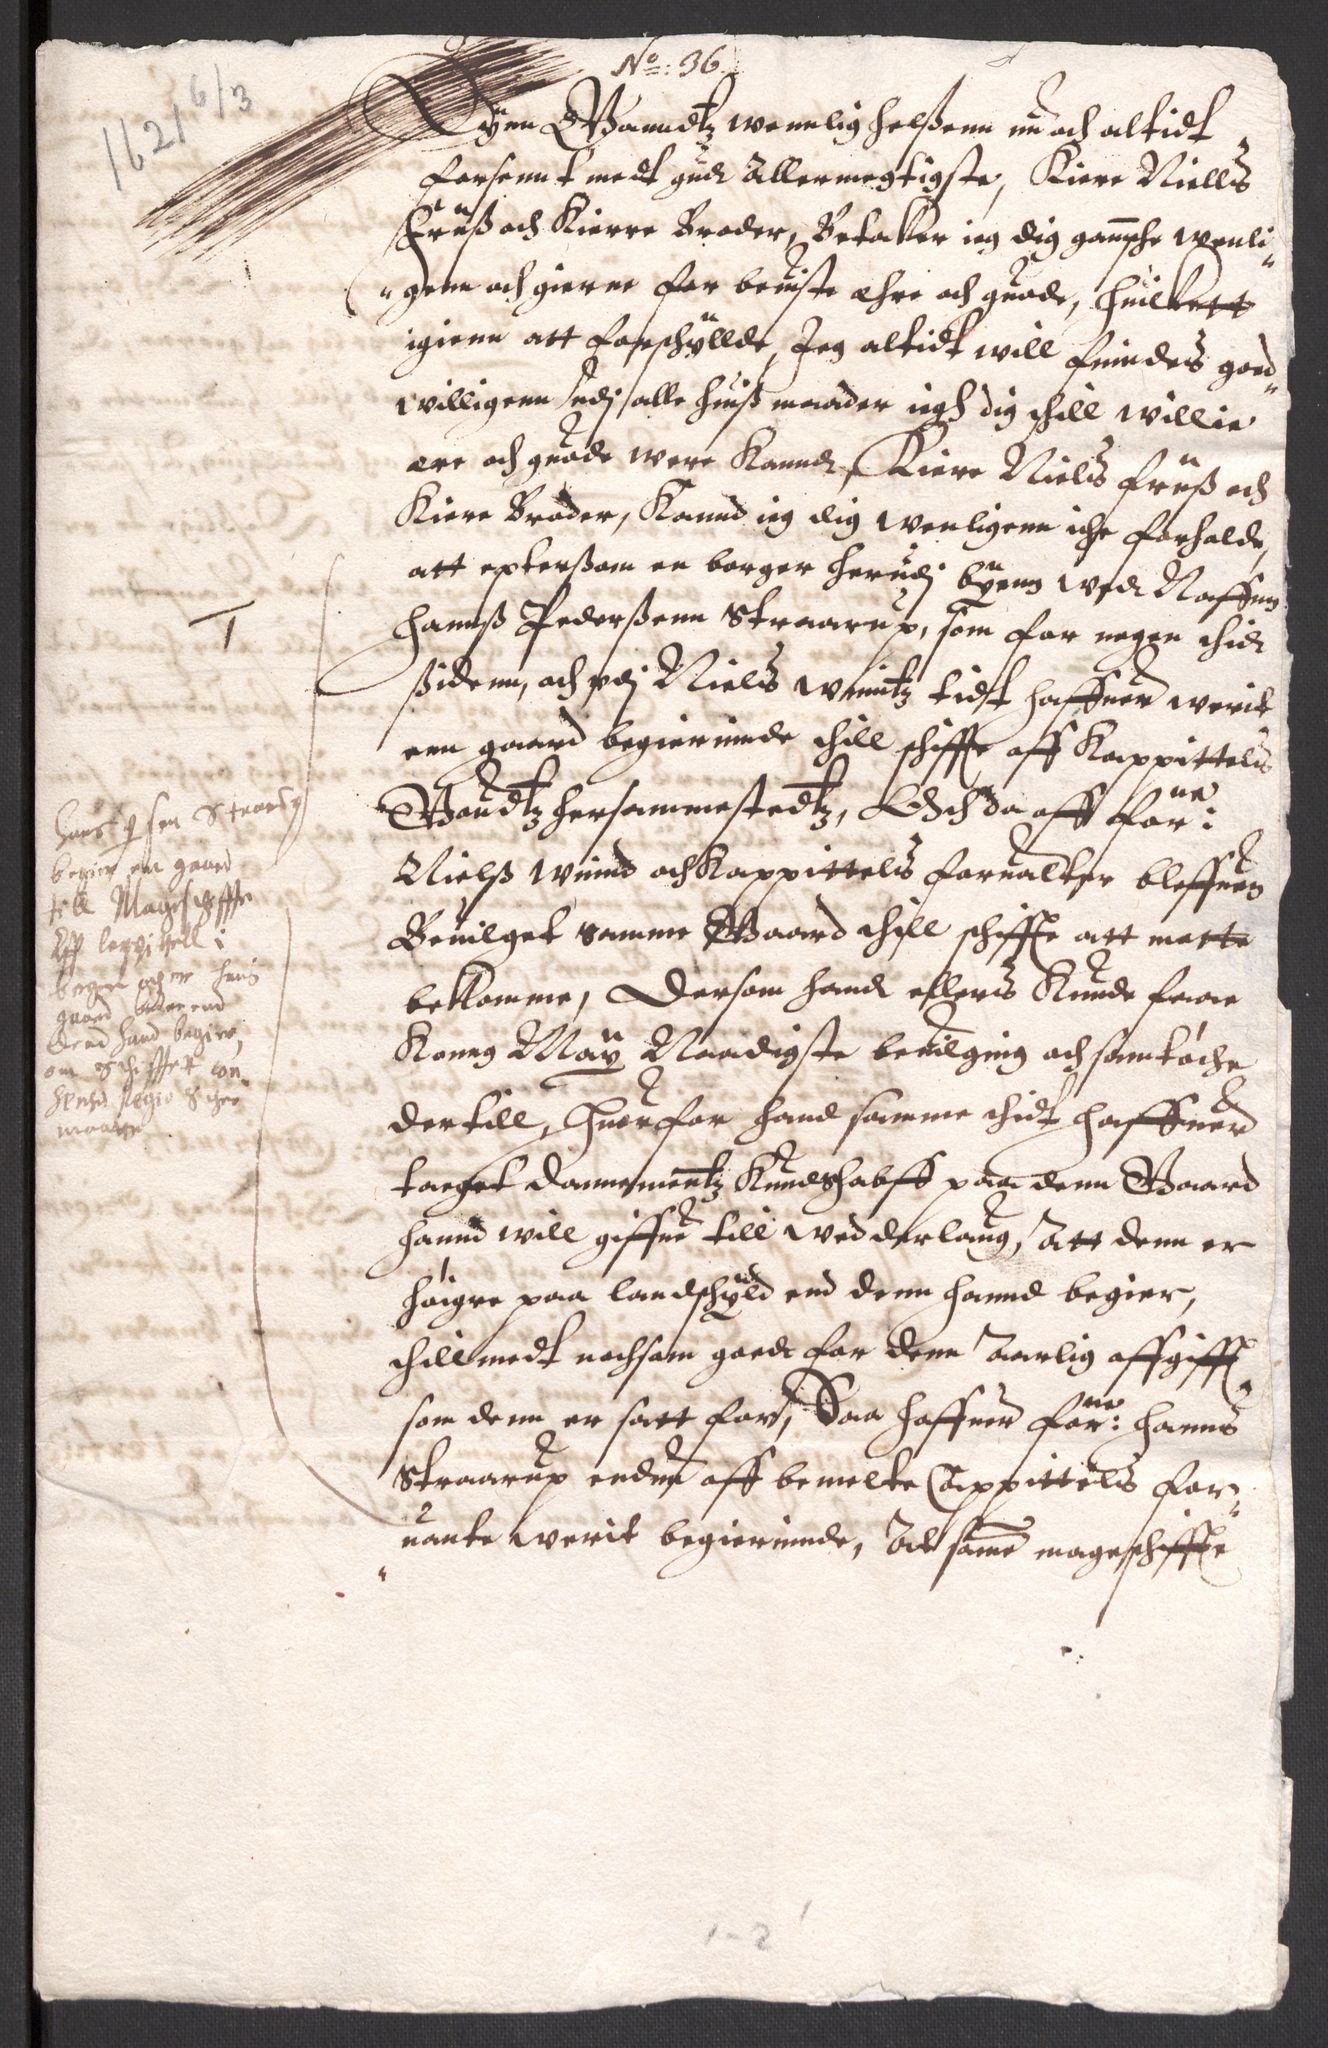 No: 36
1621 6/3
Myn Gandtz wennlig helssenn nu och altidt
forsennt medt gud Allermegtigste, Kiere Niells
Kruß och Kierre Broder, Betacker ieg dig gandsche wenli
genn och gierne for beuiste ehre och guode, huilkett
igienn att forschyllde, Jeg altidt will findes goed
willigenn udj alle huiß maader iegh dig thill willie
ere och guode were kannd, Kiere Niels Kruß och
Kiere Broder, Kannd ieg dig wenligenn iche forholde,
att epterßom en borger herudj byenn wed Naffnn
Hannß Pederßenn Straarup, som for nogen thid
ßidenn, och vdj Niels Winntz tidt haffuer werit
een gaard begierinnde thill schiffte aff Kappittels
Goudtz hersammestedtz, Och da aff forne:
Nielß Wiind och Kappittels forualter bleffuen
Beuilget samme Gaard thill schiffte att motte
bekomme, Dersom hand ellers kunde faae
Kong May Naadigste beuilging och samtøche
dertill, Huorfor hand samme thidt haffuer
taeget dannementz Kundschabff paa denn Gaard
hannd will giffue till wedderlaug, Att denn er
høigre paa landschyld end denn hannd begier,
thillmedt nochsom goed for denn Aarlig affgifft
som denn er satt for, Saa haffuer forne: Hanns
Straarup endnu aff bemelte Cappittels for
uante werit begierinnde, At samme mageschiffte
Hans P sen Straarup
begier en gaard
till Mageschiffte
Aff Capittell:
gaard bedre end
Dend hand begier,
om schifftet